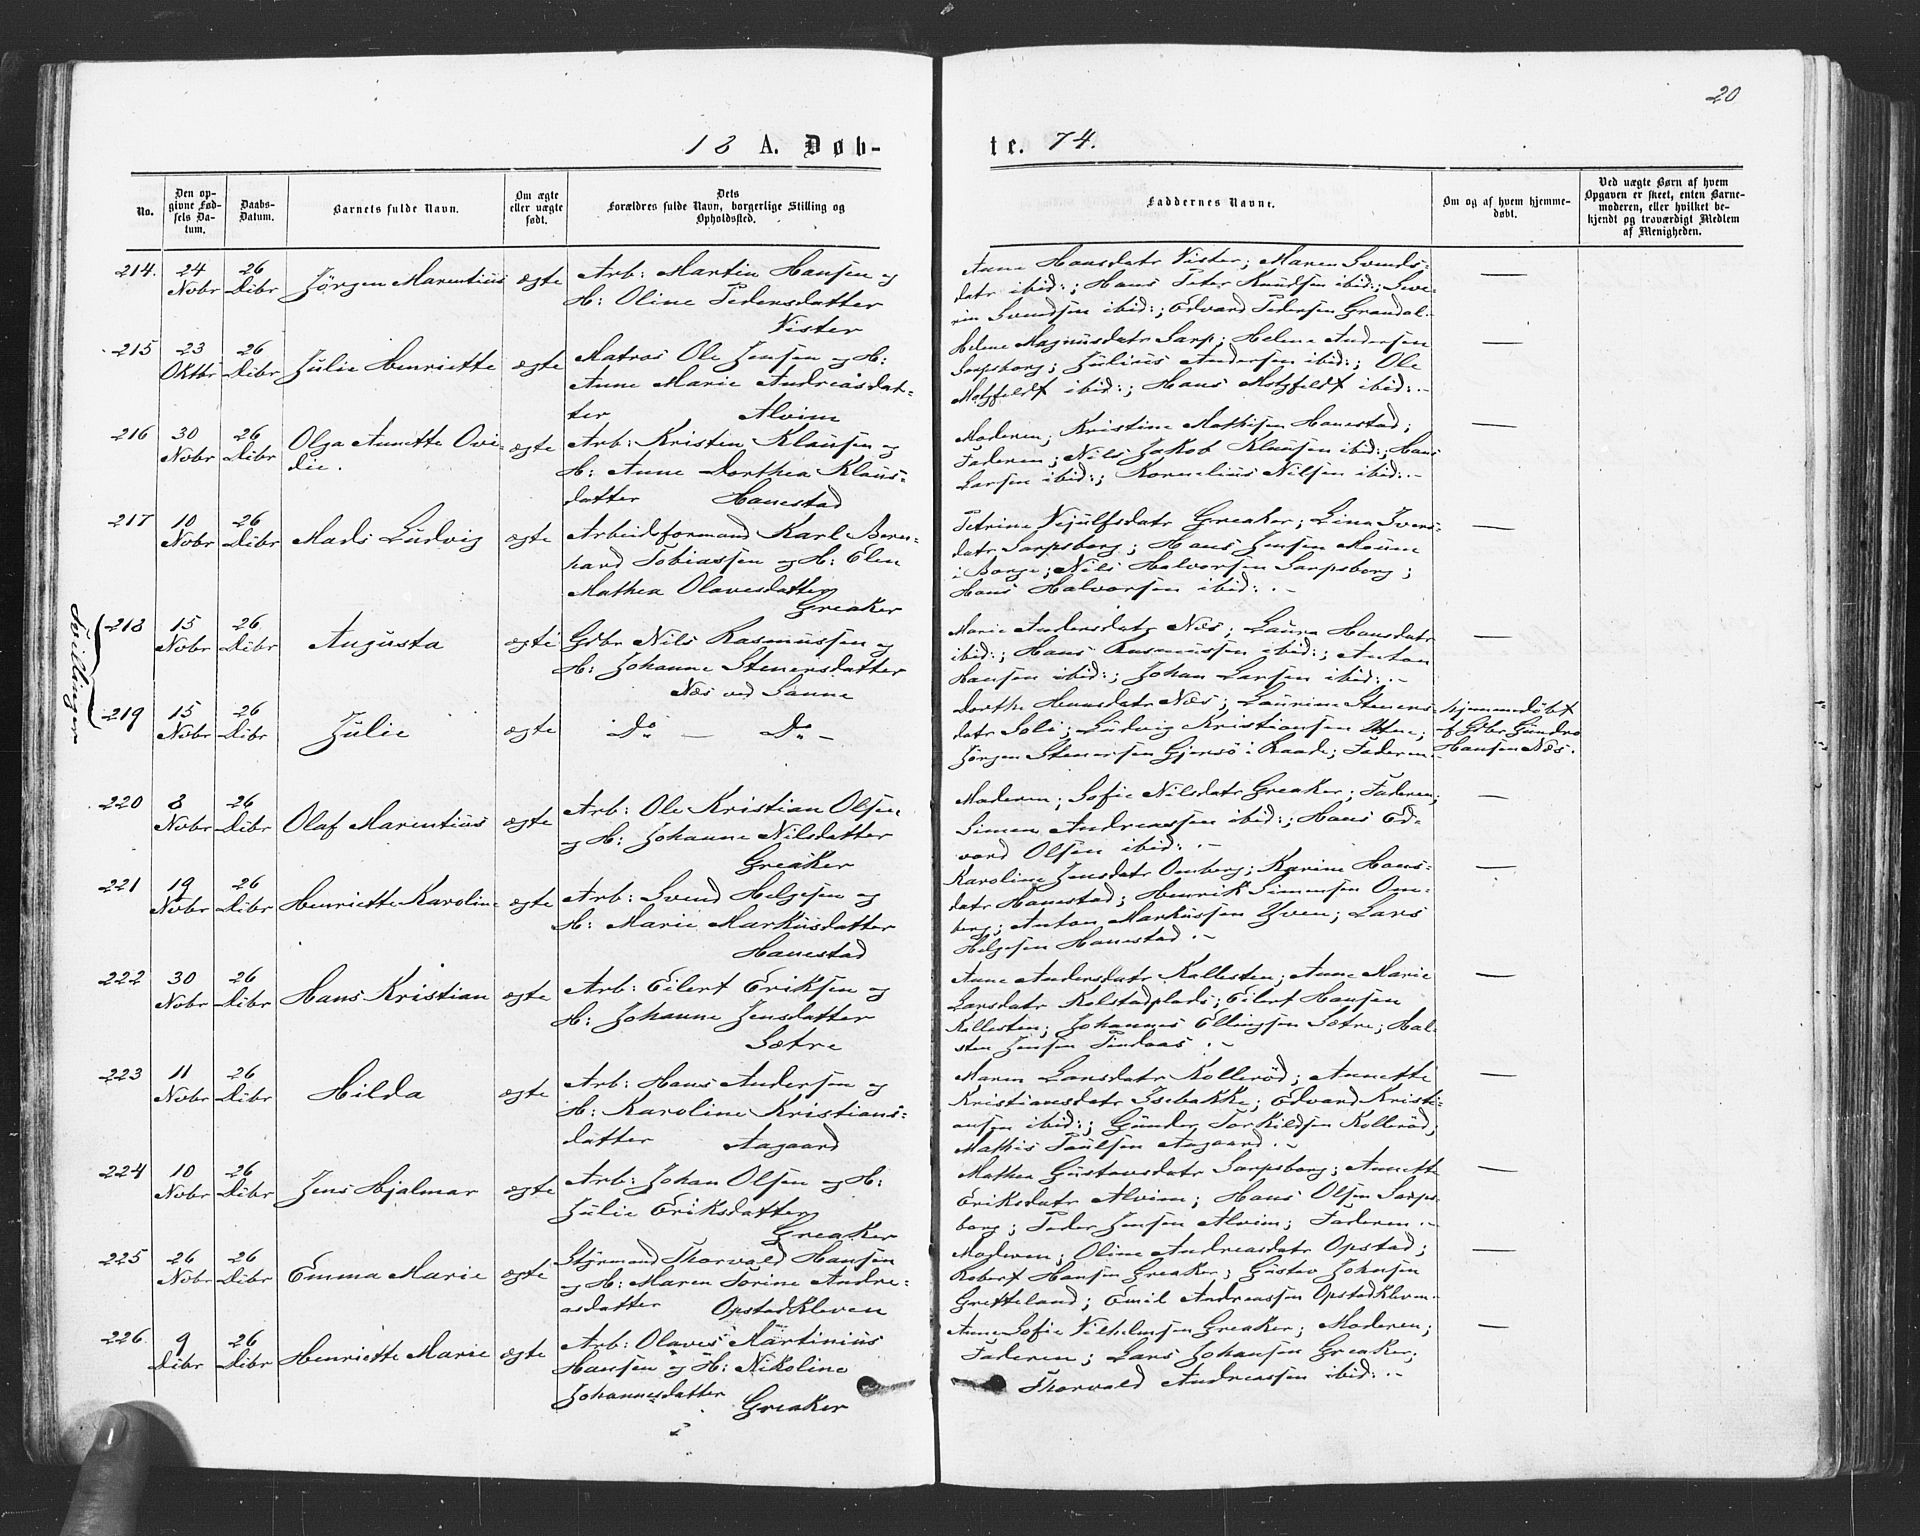 20
18 A. Døb-
te. 74.
No.
Den op-
givne Fød-
sels Da-
tum.
Daabs-
Datum.
Barnets fulde Navn.
Om ægte
eller uægte
født.
Dets
Forældres fulde Navn, borgerlige Stilling og
Opholdssted.
Faddernes Navne.
Om og af hvem hjemme-
døbt.
Ved uægte Børn af hvem
Opgaven er skeet, enten Barne-
moderen, eller hvilket be-
kjendt og troværdigt Medlem
af Menigheden.
214. 24 Novbr 26 Dcbr Jörgen Marentius ægte
Arb: Martin Hansen og
H: Oline Pedersdatter
Vister
Anne Hansdatr Vister; Maren Svends-
datr ibid:; Hans Peter Knudsen ibid:; Seve-
rin Svendsen ibid:; Edvard Pedersen Grandal.
—
215 23 Oktbr 26 Dcbr Julie Henriette ægte
Matros Ole Jensen og H:
Anne Marie Andreasdat-
ter Alvim
Helene Magnusdatr Sarp; Helene Andersen
Sarpsborg; Julius Andersen ibid:; Ole
Motzfeldt ibid:; Hans Motzfeldt ibid: .-
—
216 30 Novbr 26 Dcbr Olga Annette Ovi-
die. ægte
Arb: Kristin Klausen og
H: Anne Dorthea Klaus-
datter Hanestad
Moderen; Kristine Mathisen Hanestad;
Faderen; Nils Jakob Klausen ibid:; Hans
Larsen ibid:; Kornelius Nilsen ibid: .-
—
217 10 Novbr 26 Dcbr Mads Ludvig ægte
Arbeidsformand Karl Bern-
hard Tobiassen og H: Elen
Mathea Olavesdatter
Greaker
Petrine Vejulfsdatr Greaker; Lina Ivers-
datr Sarpsborg; Hans Jensen Moum
i Borge; Nils Halvorsen Sarpsborg;
Hans Halvorsen ibid: .-
—
Tvillinger
218 15 Novbr 26 Dcbr Augusta ægte
Gdbr Nils Rasmussen og
H: Johanne Stenersdatter
Næs ved Sanne
Marie Andersdatr Næs; Laura Hansdatr
ibid:; Hans Rasmussen ibid:; Anton
Hansen ibid:; Johan Larsen ibid: .-
—
219 15 Novbr 26 Dcbr Julie ægte
Do — Do —
Dorthe Hansdatr Næs; Laurine Steners-
datr Soli; Ludvig Kristiansen Utne;
Jörgen Stenersen Gjensö i Raade; Faderen
hjemmedöbt
af Gdbr Gundro
Hansen Næs.
220 8 Novbr 26 Dcbr Olaf Marentius ægte
Arb: Ole Kristian Olsen
og H: Johanne Nilsdatter
Greaker
Moderen; Sofie Nilsdatr Greaker; Faderen;
Simen Andreassen ibid:; Hans Ed-
vard Olsen ibid: .-
—
221 19 Novbr 26 Dcbr Henriette Karoline ægte
Arb: Svend Helgesen og
H: Marie Markusdatter
Hanestad
Karoline Jensdatr Omberg; Karine Hans-
datr Hanestad; Henrik Simensen Om-
berg; Anton Markussen Yven; Lars
Helgesen Hanestad .-
—
222 30 Novbr 26 Dcbr Hans Kristian ægte
Arb: Eilert Eriksen og
H: Johanne Jensdatter
Sætre
Anne Andersdatr Kallesten; Anne Marie
Larsdatr Kolstadplads; Eilert Hansen
Kallesten; Johannes Ellingsen Sætre; Hal-
sten Jensen Tindaas .-
—
223 11 Novbr 26 Dcbr Hilda ægte
Arb: Hans Andersen og
H: Karoline Kristians-
datter Aagaard
Maren Larsdatr Kolleröd; Annette
Kristiansdatr Isebakke; Edvard Kristi-
ansen ibid:; Gunder Torkildsen Kolleröd;
Mathis Paulsen Aagaard .-
—
224 10 Novbr 26 Dcbr Jens Hjalmar ægte
Arb: Johan Olsen og H:
Julie Eriksdatter
Greaker
Mathea Gustavsdatr Sarpsborg; Annette
Eriksdatr Alvim; Hans Olsen Sarps-
borg; Peder Jensen Alvim; Faderen .-
—
225 26 Novbr 26 Dcbr Emma Marie ægte
Styrmand Thorvald Hansen
og H: Maren Torine Andre-
asdatter Opstadkleven
Moderen; Oline Andreasdatr Opstad;
Robert Hansen Greaker; Gustav Johnsen
Gretteland; Emil Andreassen Opstadkleven.
—
226. 9 Dcbr 26 Dcbr Henriette Marie ægte
Arb: Olaves Martinius
Hansen og H: Nikoline
Johannesdatter
Greaker
Anne Sofie Vilhelmsen Greaker; Moderen;
Faderen; Lars Johansen Greaker;
Thorvald Andreassen ibid: .-
—